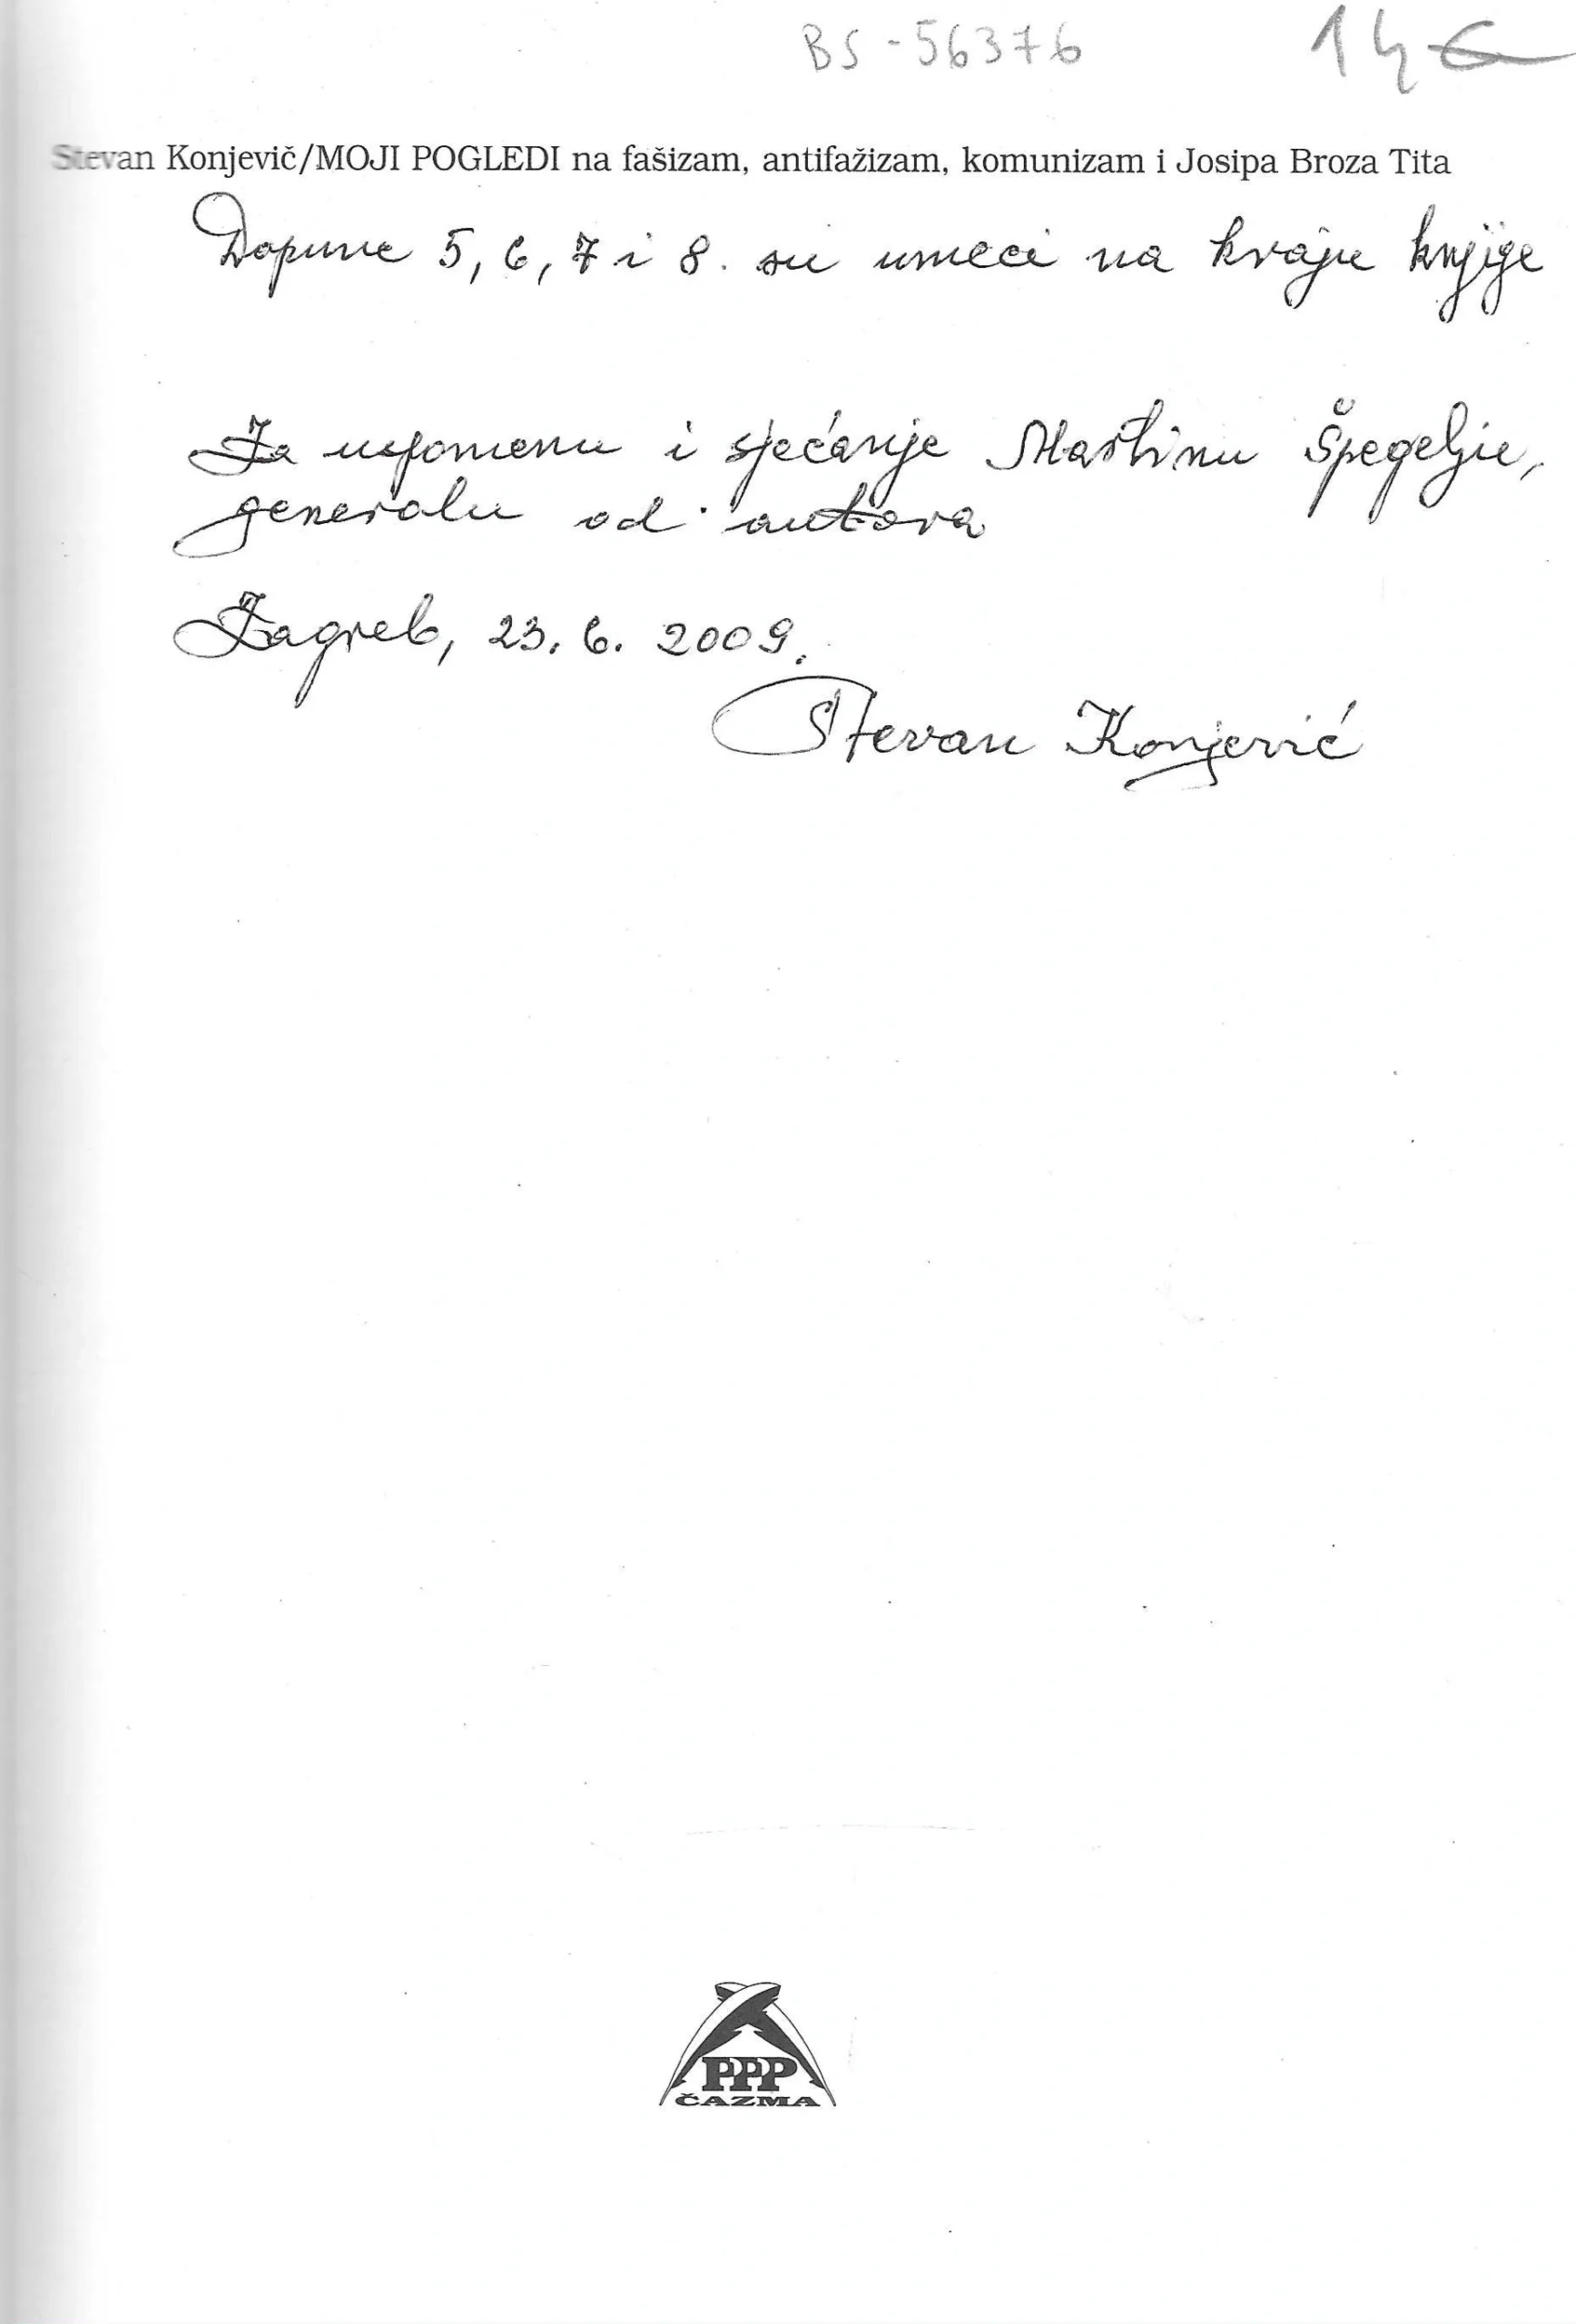 BS-56376 14 €
Stevan Konjevič/MOJI POGLEDI na fašizam, antifažizam, komunizam i Josipa Broza Tita
Dopune 5, 6, 7 i 8. su umeci na kraju knjige
Za uspomenu i sjećanje Martinu Špegelju,
generalu od autora
Zagreb, 23. 6. 2009.
Stevan Konjević
PPP
ČAZMA